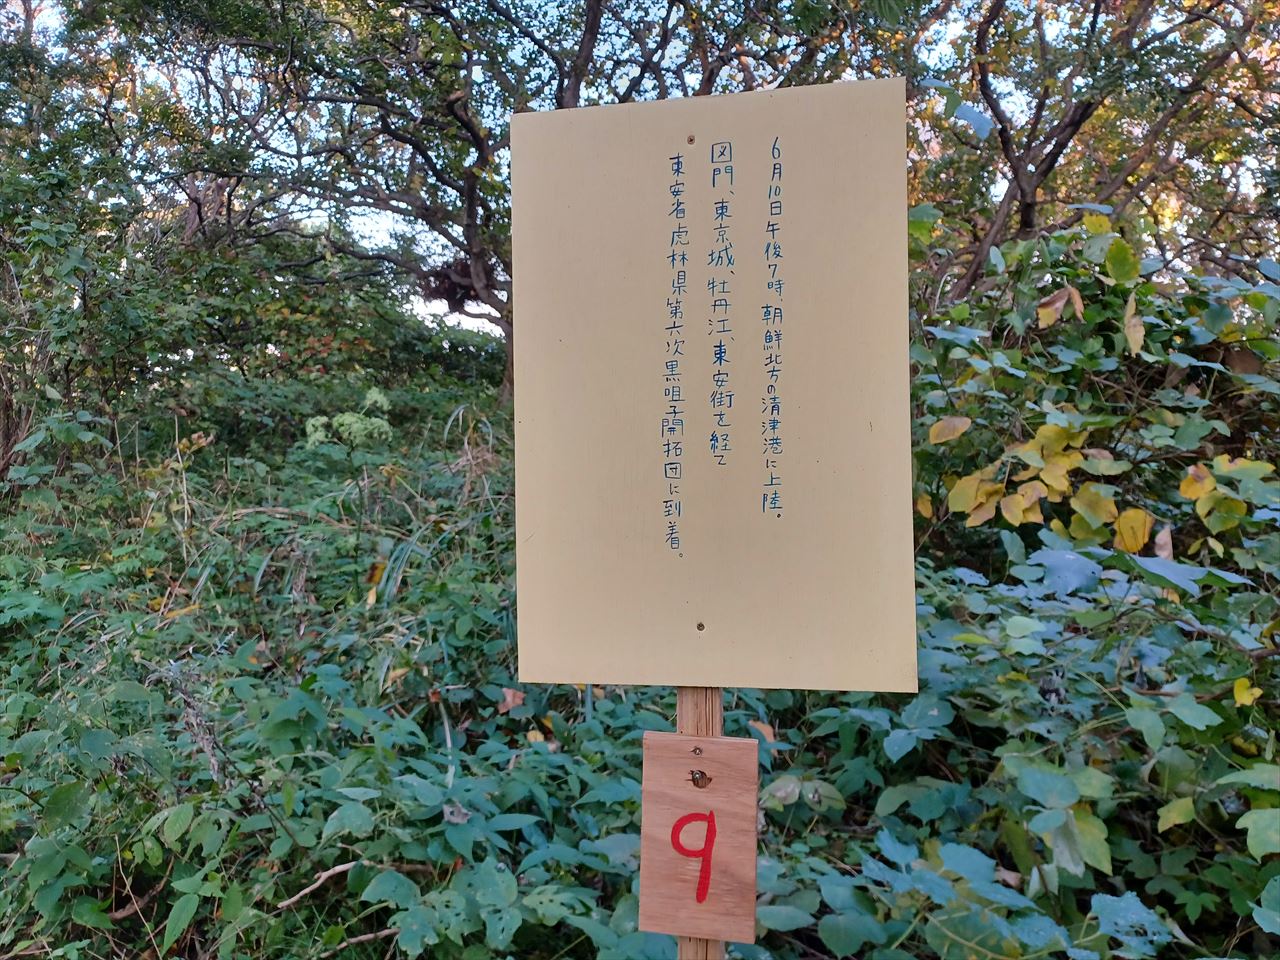 6月10日午後7時、朝鮮北方の清津港に上陸。
図門、東京城、牡丹江、東安街を経て
東安省虎林県第六次黒咀子開拓団に到着。
9